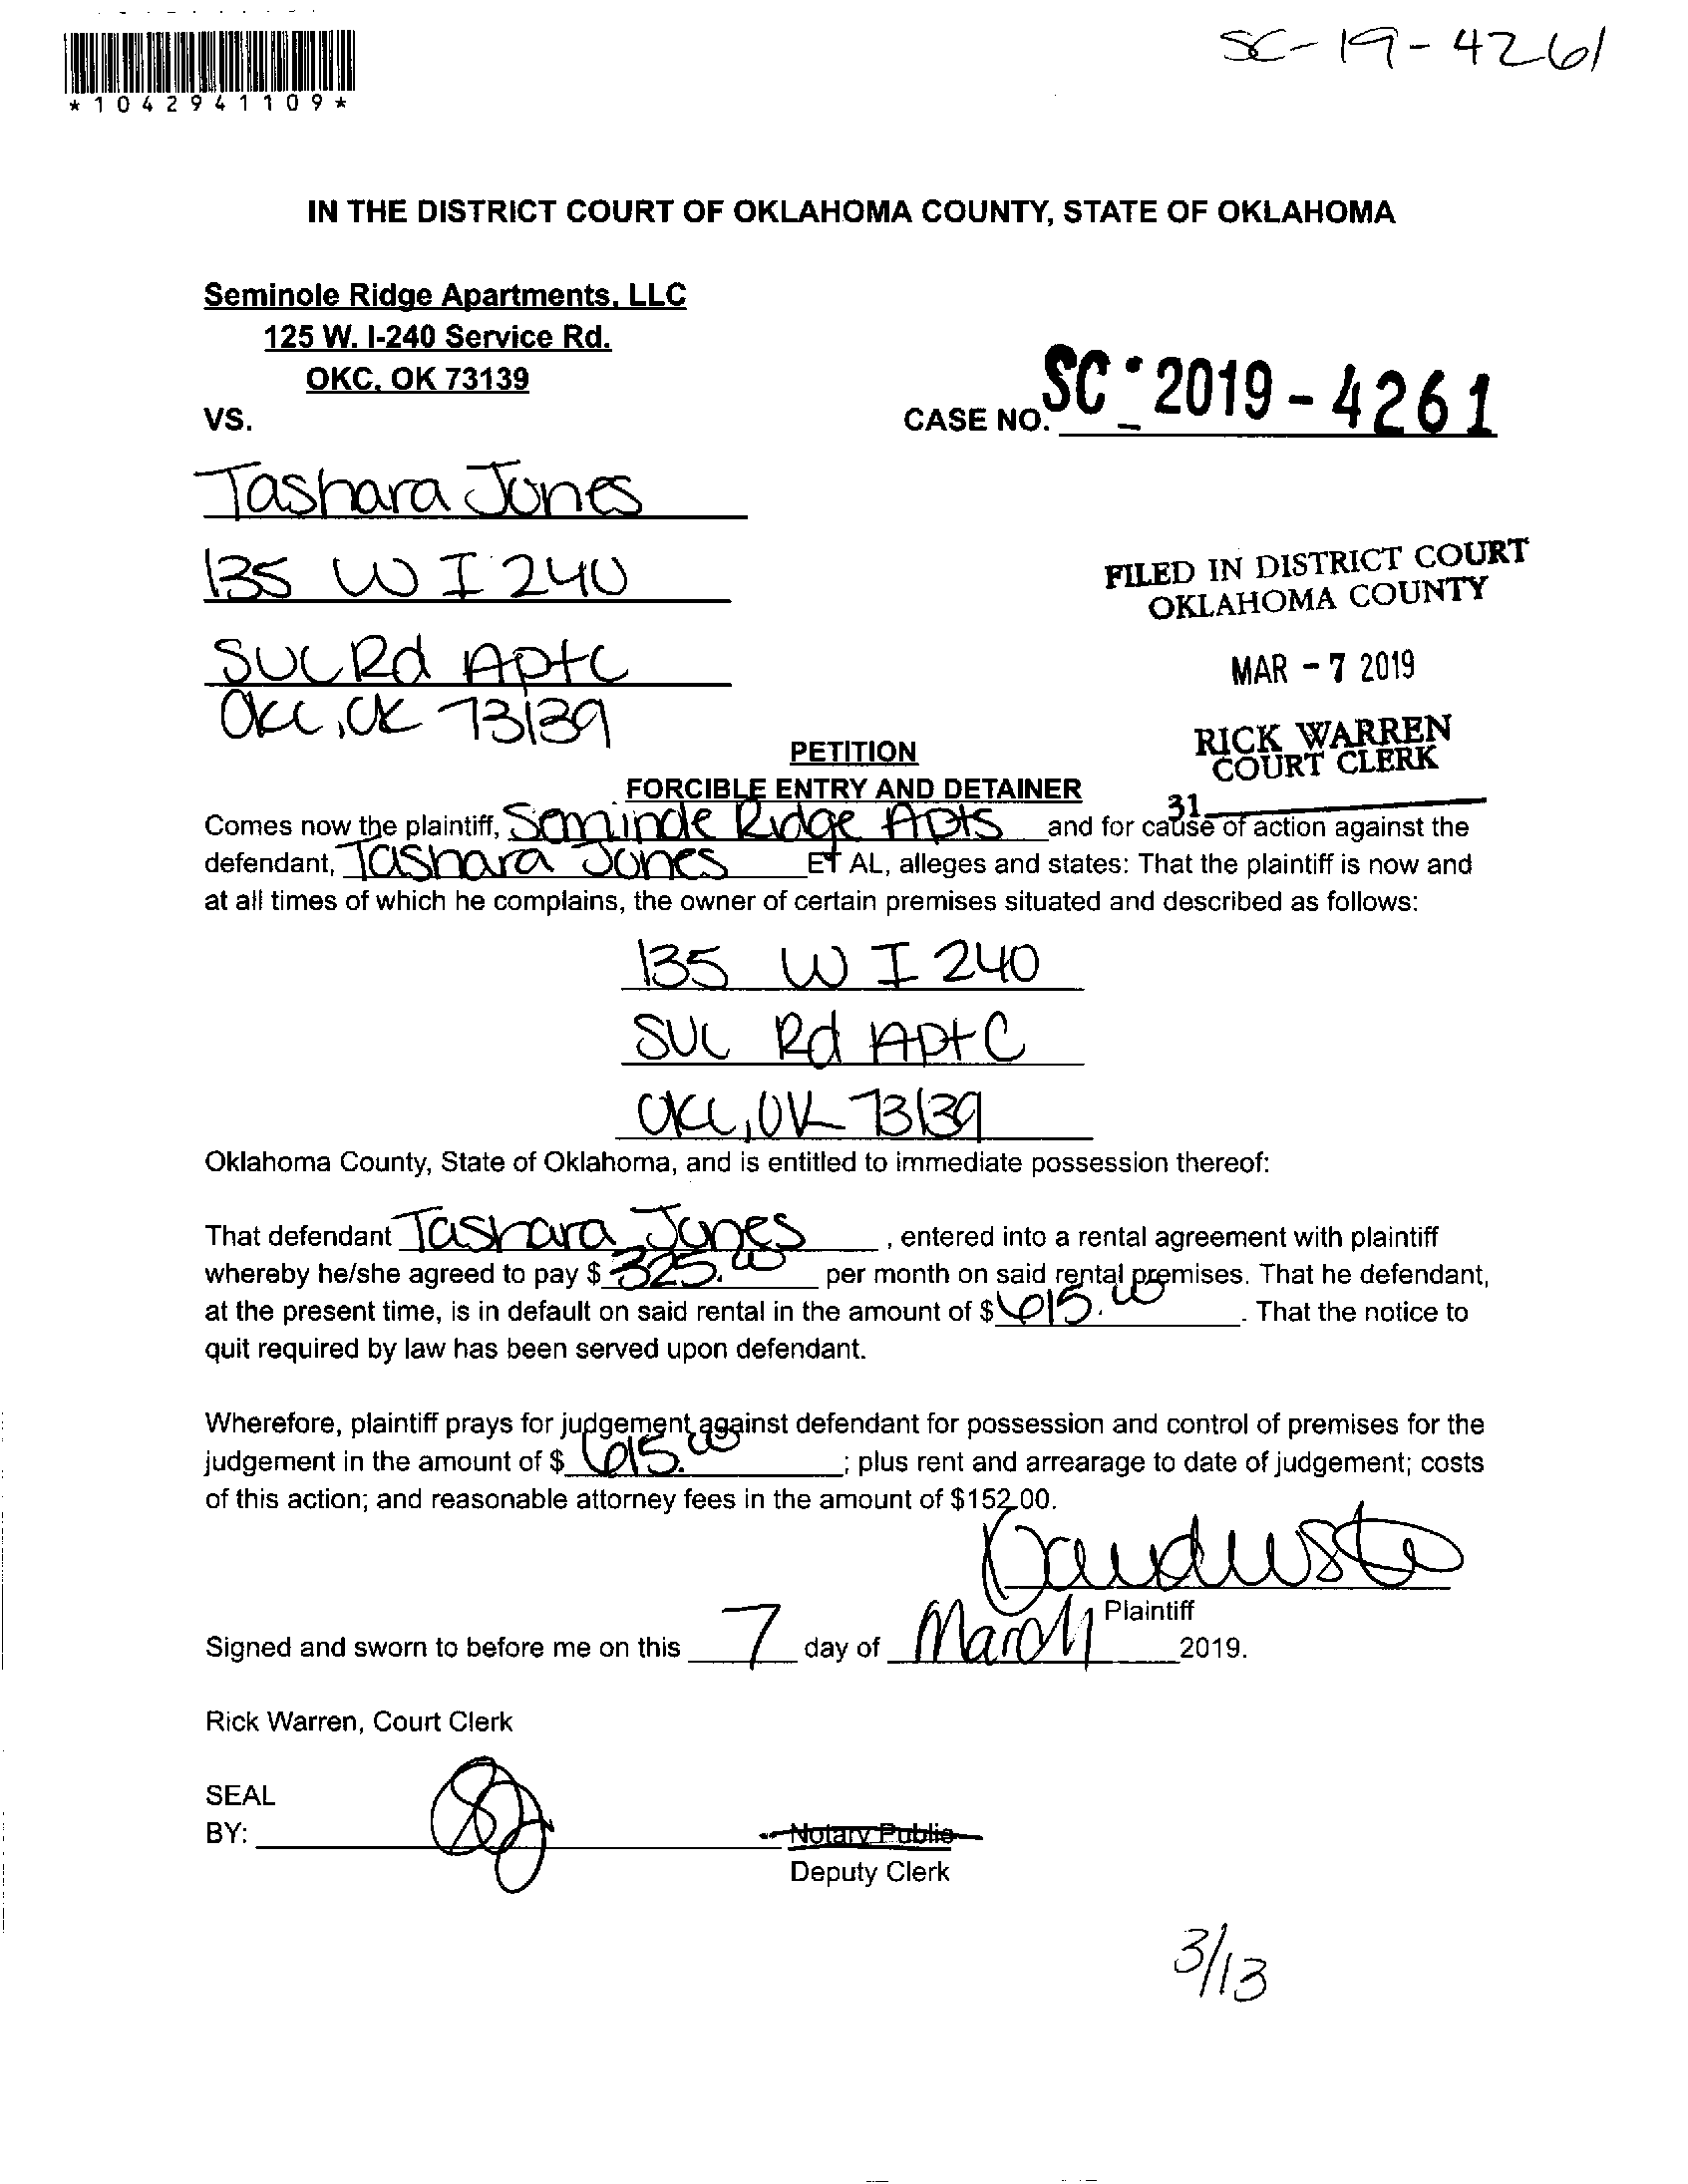 SC-19-4261
*1042941109*
IN THE DISTRICT COURT OF OKLAHOMA COUNTY, STATE OF OKLAHOMA
Seminole Ridge Apartments, LLC
125 W. I-240 Service Rd.
OKC, OK 73139
VS.
CASE NO. SC-2019-4261
Tashara Jones
135 W I 240
SVC Rd Apt C
OKC, OK 73139
FILED IN DISTRICT COURT
OKLAHOMA COUNTY
MAR - 7 2019
RICK WARREN
COURT CLERK
31
PETITION
FORCIBLE ENTRY AND DETAINER
Comes now the plaintiff, Seminole Ridge Apts and for cause of action against the
defendant, Tashara Jones ET AL, alleges and states: That the plaintiff is now and
at all times of which he complains, the owner of certain premises situated and described as follows:
135 W I 240
SVC Rd Apt C
OKC, OK 73139
Oklahoma County, State of Oklahoma, and is entitled to immediate possession thereof:
That defendant Tashara Jones, entered into a rental agreement with plaintiff
whereby he/she agreed to pay $ 325.00 per month on said rental premises. That he defendant,
at the present time, is in default on said rental in the amount of $ 615.00. That the notice to
quit required by law has been served upon defendant.
Wherefore, plaintiff prays for judgement against defendant for possession and control of premises for the
judgement in the amount of $ 615.00; plus rent and arrearage to date of judgement; costs
of this action; and reasonable attorney fees in the amount of $152.00.
Plaintiff
Signed and sworn to before me on this 7 day of March 2019.
Rick Warren, Court Clerk
SEAL
BY:
Notary Public
Deputy Clerk
3/13